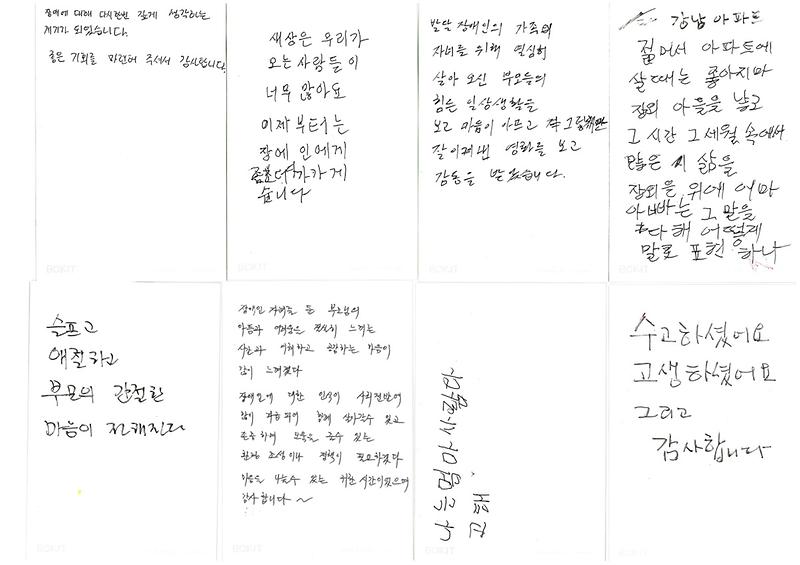 장애에 대해 다시한번 깊게 생각하는
계기가 되었습니다.
좋은 기회를 마련해 주셔서 감사합니다.
새상은 우리가
오는 사람들이
너무 않아요
이제부터는
장에인에게
좀더 가가게
습니다
발달 장애인의 가족의
자녀를 위해 열심히
살아 오신 부모들의
힘든 일상생활을
보고 마음이 아프고
잘 이겨낸 영화를 보고
감동을 받았습니다.
강남아파트
젊어서 아파트에
살때는 좋아지마
장외 아를을 낳고
그 시간 그 세월 속에서
많은 삶을
장외을 위에 어마
아빠는 그 말을
다해 어떻게
말로 표현 하나
슬프고
애절하고
부모의 간절한
마음이 전해진다
장애인 자녀를 둔 부모님의
아픔과 어려움은 절실히 느끼는
이해하고 공감하는 마음이
많이 느껴졌다
장애인에 대한 인식이 사회전반에
많이 함께 살아갈수 있고
도움을 줄수 있는
환경 조성이나 정책이 필요하겠다
마음을 나눌수 있는 귀한 시간이었으며
감사합니다 ~
수고하셨어요
고생하셨어요
그리고
감사합니다
BOKJIT